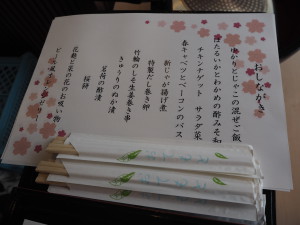 おしながき
ゆかりとじゃこの混ぜご飯
蛍たるいかとわかめの酢みそ和
チキンナゲット サラダ菜
春キャベツとベーコンのパス
新じゃが揚げ煮
特製だし巻き卵
竹輪のしそ生姜巻き串
きゅうりのぬか漬
茗荷の酢漬
桜待
花麩と菜の花のお吸い物